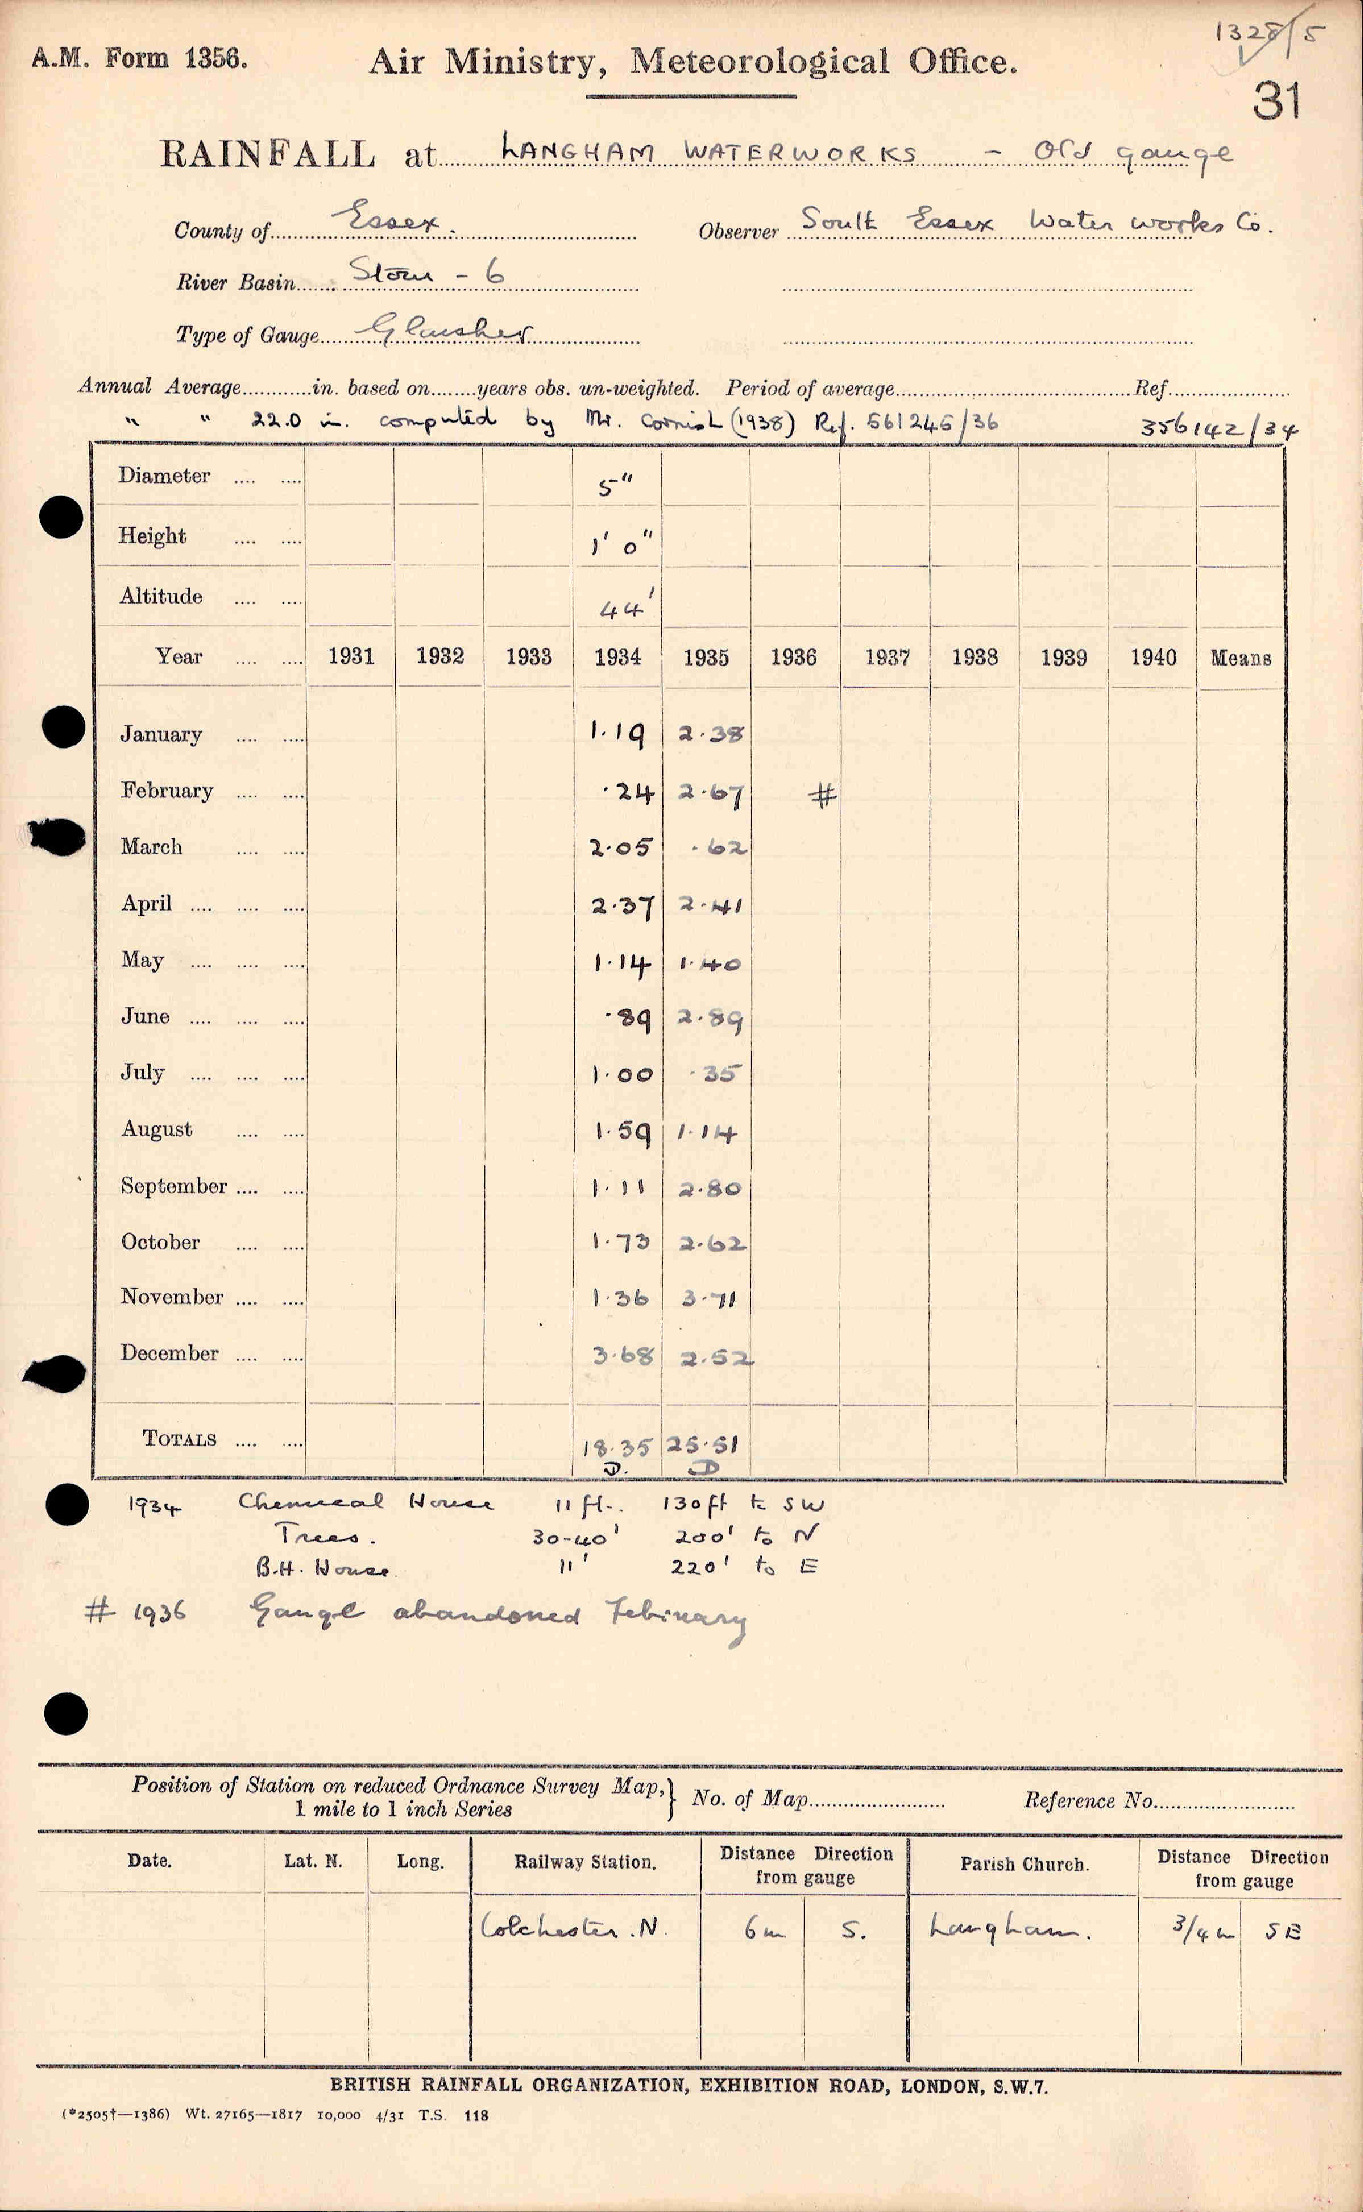 1328/5
A.M. Form 1356. Air Ministry, Meteorological Office.
31
RAINFALL at LANGHAM WATERWORKS - Old gauge
County of Essex. Observer South Essex Water works Co.
River Basin Stour - 6
Type of Gauge Glaisher
Annual Average in. based on years obs. un-weighted. Period of average Ref.
" " 22.0 in. computed by Mr. Cornish (1938) Ref. 561246/36 356142/34
Diameter 5"
Height 1' 0"
Altitude 44'
Year 1931 1932 1933 1934 1935 1936 1937 1938 1939 1940 Means
January 1.19 2.38
February .24 2.67 #
March 2.05 .62
April 2.37 2.41
May 1.14 1.40
June .89 2.89
July 1.00 .35
August 1.59 1.14
September 1.11 2.80
October 1.73 2.62
November 1.36 3.71
December 3.68 2.52
TOTALS 18.35 25.51
D. D
1934 Chemical House 11 ft. 130ft to SW
Trees. 30-40' 200' to N
B.H. House 11' 220' to E
# 1936 Gauge abandoned February
Position of Station on reduced Ordnance Survey Map,} No. of Map Reference No.
1 mile to 1 inch Series
Date. Lat. N. Long. Railway Station. Distance Direction from gauge Parish Church. Distance Direction from gauge
Colchester. N. 6m S. Langham. 3/4 m SE
BRITISH RAINFALL ORGANIZATION, EXHIBITION ROAD, LONDON, S.W.7.
(*2505†—1386) Wt. 27165—1817 10,000 4/31 T.S. 118